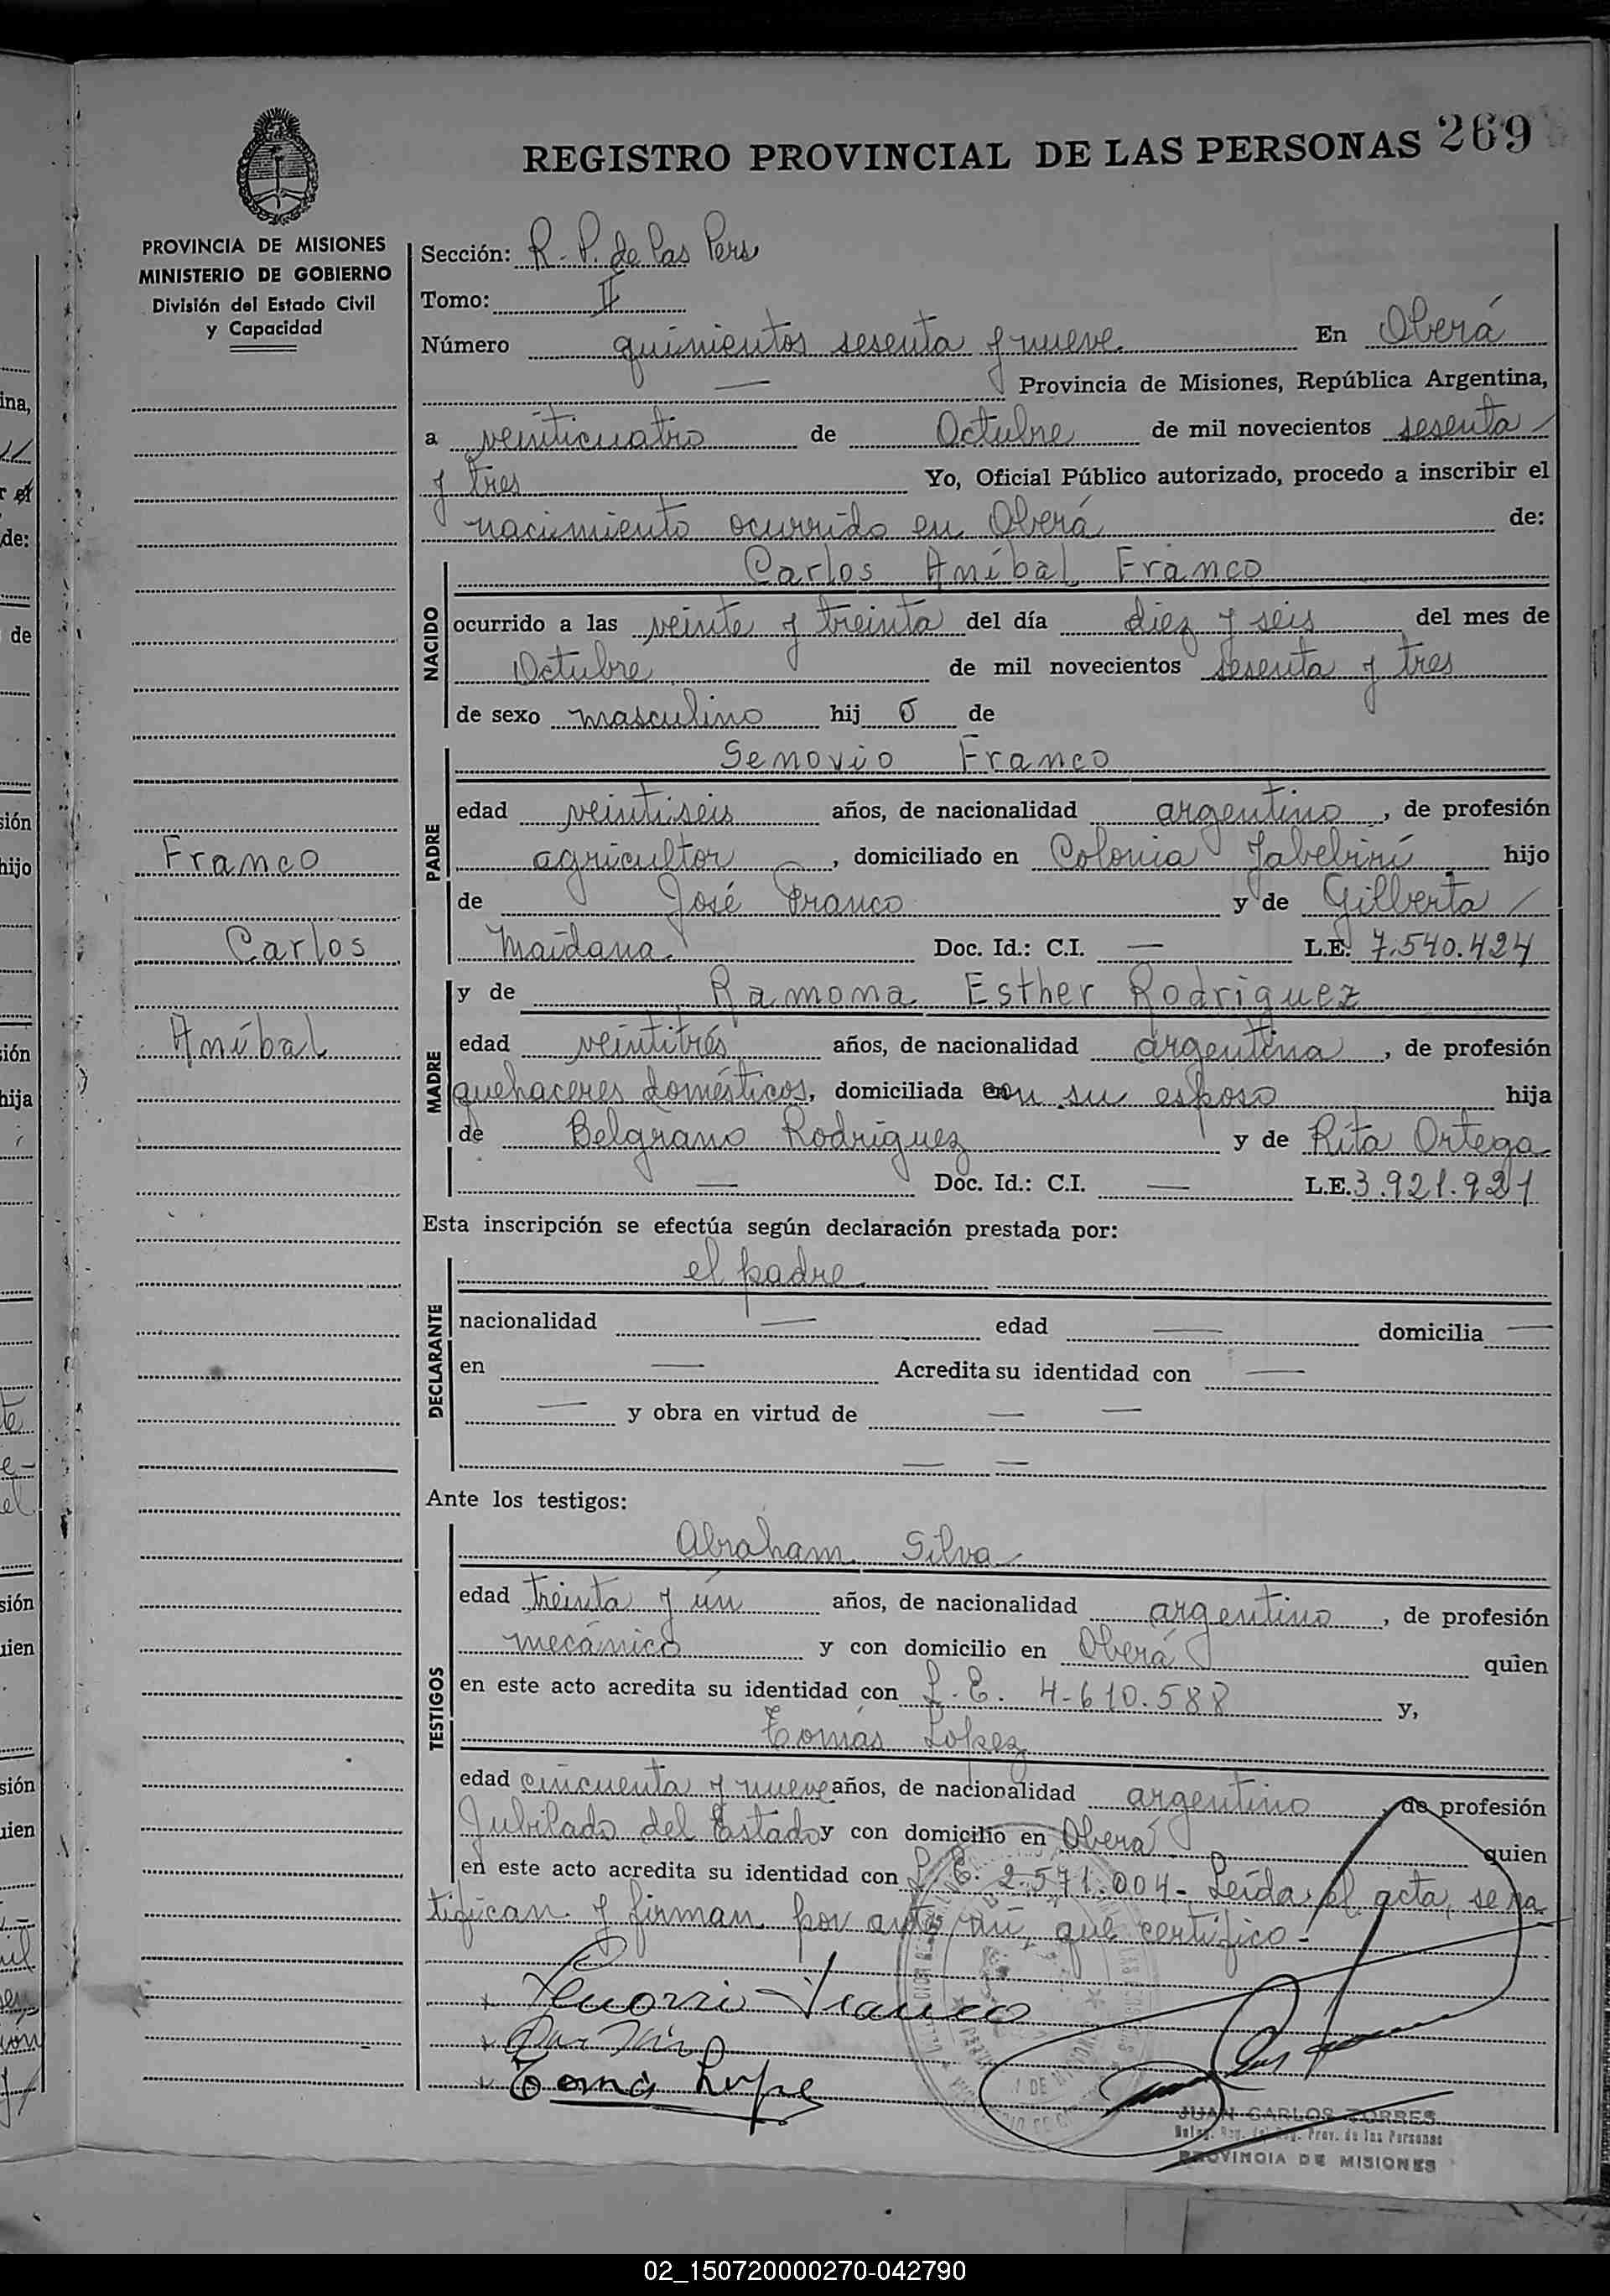 REGISTRO PROVINCIAL DE LAS PERSONAS 269
PROVINCIA DE MISIONES
MINISTERIO DE GOBIERNO
División del Estado Civil
y Capacidad
Franco
Carlos
Aníbal
Sección: R. P. de las Pers
Tomo: II
Número quinientos sesenta y nueve En Oberá
— Provincia de Misiones, República Argentina,
a veinticuatro de Octubre de mil novecientos sesenta
y tres Yo, Oficial Público autorizado, procedo a inscribir el
nacimiento ocurrido en Oberá de:
NACIDO
Carlos Aníbal Franco
ocurrido a las veinte y treinta del día diez y seis del mes de
Octubre de mil novecientos sesenta y tres
de sexo masculino hij o de
PADRE
Senovio Franco
edad veintiseis años, de nacionalidad argentino, de profesión
agricultor, domiciliado en Colonia hijo
de José Franco y de Gilberta
Maidana Doc. Id.: C.I. — L.E. 7.540.424
MADRE
y de Ramona Esther Rodriguez
edad veintitrés años, de nacionalidad argentina, de profesión
quehaceres domésticos, domiciliada con su esposo hija
de Belgrano Rodriguez y de Rita Ortega
— Doc. Id.: C.I. — L.E. 3.921.921
Esta inscripción se efectúa según declaración prestada por:
DECLARANTE
el padre
nacionalidad — edad — domicilia —
en — Acredita su identidad con —
— y obra en virtud de — —
— —
Ante los testigos:
TESTIGOS
Abraham Silva
edad treinta y un años, de nacionalidad argentino, de profesión
mecánico y con domicilio en Oberá quien
en este acto acredita su identidad con L. E. 4-610.588 y,
Tomás Lopez
edad cincuenta y nueve años, de nacionalidad argentino, de profesión
Jubilado del Estado y con domicilio en Oberá quien
en este acto acredita su identidad con L. E. 2.571.004- Leída el acta, se ra
tifican y firman por ante mí, que certifico-
Franco
JUAN CARLOS TORRES
Prov. de las Personas
PROVINCIA DE MISIONES
02_150720000270-042790